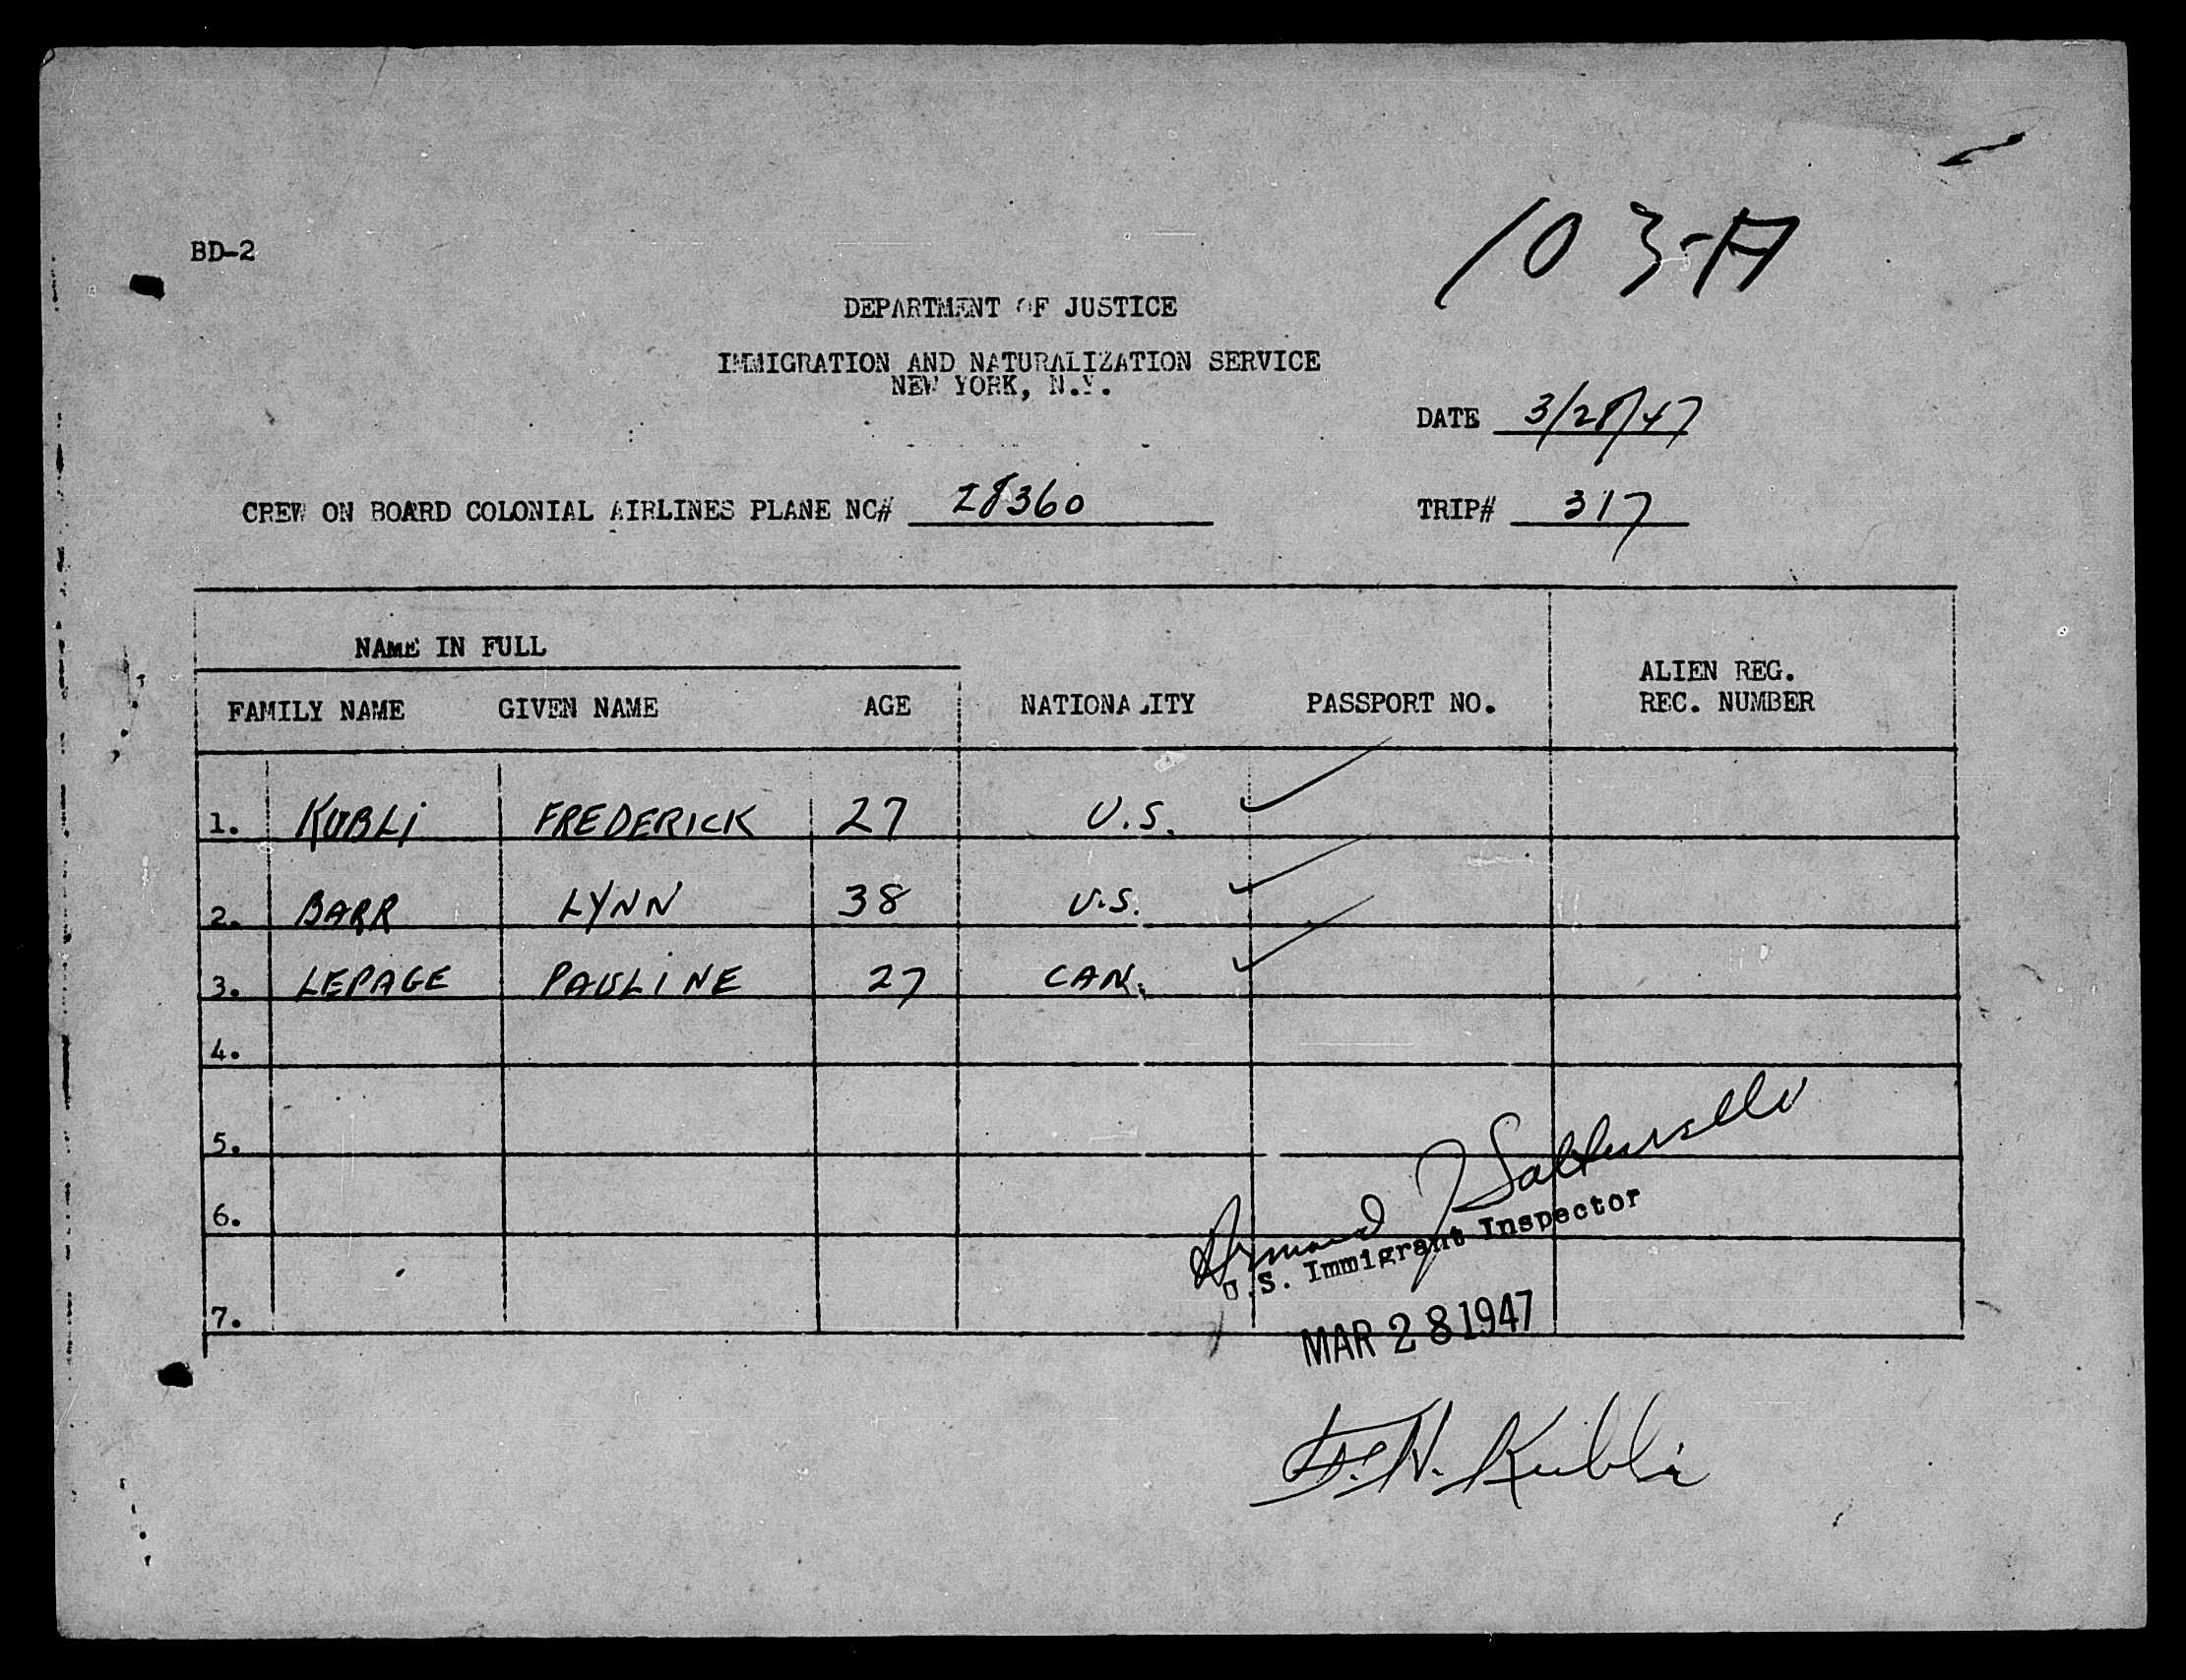 103-A
BD-2
DEPARTMENT OF JUSTICE
IMMIGRATION AND NATURALIZATION SERVICE
NEW YORK, N.Y.
DATE 3/28/47
CREW ON BOARD COLONIAL AIRLINES PLANE NC# 28360 TRIP# 317
NAME IN FULL
FAMILY NAME GIVEN NAME AGE NATIONALITY PASSPORT NO. ALIEN REG.
REC. NUMBER
1. KUBLI FREDERICK 27 U.S.
2. BARR LYNN 38 U.S.
3. LEPAGE PAULINE 27 CAN.
4.
5.
6.
7.
Armand J
U.S. Immigrant Inspector
MAR 28 1947
F.H. Kubli